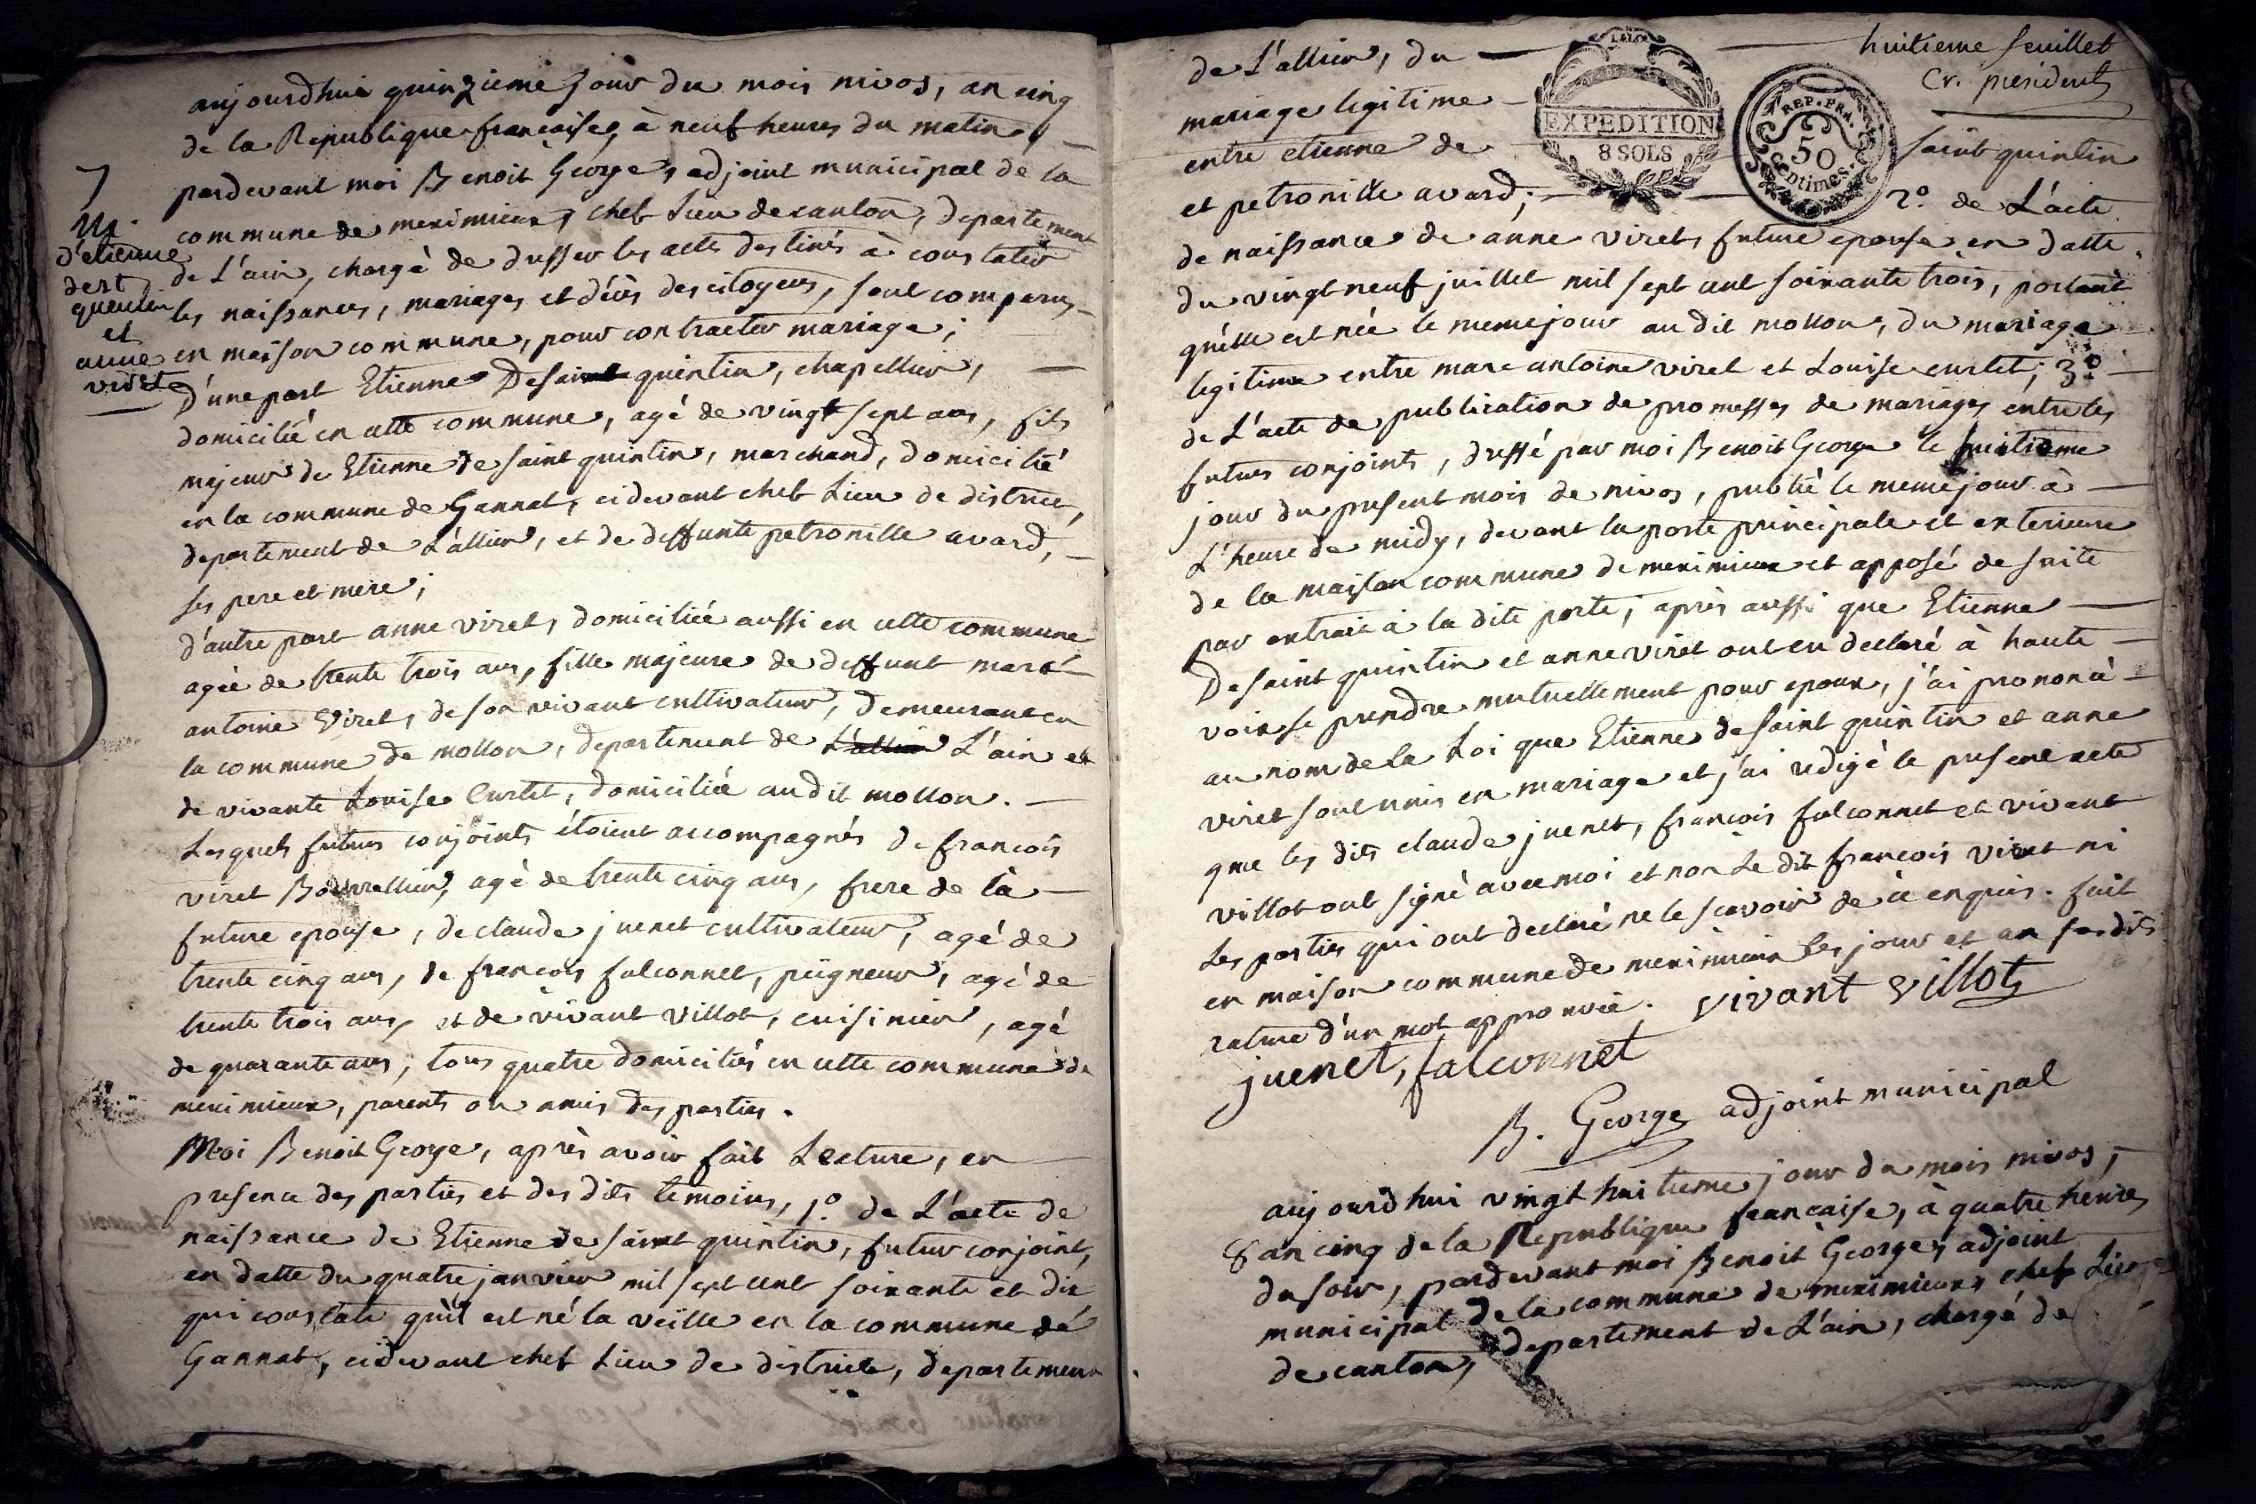 aujourdhui quinzieme jour du mois nivos, an cinq
de la Republique francaise, à neuf heures du matin,
pardevant moi Benoit George, adjoint municipal de la
commune de meximieux, chef Lieu de canton, departement
de L'ain, chargé de dresser les actes destinés à constater
les naissances, mariages et décès des citoyens, sont comparus
en maison commune, pour contracter mariage;
D'une part Etienne Desaint quintin, chapellier,
domicilié en cette commune, agé de vingt sept ans, fils
majeur de Etienne de saint quintin, marchand, domicilié
en la commune de Gannat, cidevant chef Lieu de district,
departement de L'allier, et de deffunte petronille avard,
ses pere et mere;
d'autre part anne viret, domiciliée aussi en cette commune
agée de trente trois ans, fille majeure de deffunt marc
antoine Viret, de son vivant cultivateur, demeurant en
la commune de mollon, departement de L'allier L'ain et
de vivante Louise Curtet, domiciliée audit mollon.
Lesquels futurs conjoints étoient accompagnés de francois
viret Bourrellier, agé de trente cinq ans, frere de la
future epouse, de claude juenet cultivateur, agé de
trente cinq ans, de francois falconnet, peigneur, agé de
trente trois ans, et de vivant villot, cuisinier, agé
de quarante ans, tous quatre domiciliés en cette commune de
meximieux, parents ou amis des parties.
Moi Benoit George, après avoir fait Lecture, en
presence des parties et des dits temoins, 1º. de L'acte de
naissance de Etienne de saint quintin, futur conjoint,
en datte du quatre janvier mil sept cent soixante et dix
qui constate qu'il est né la veille en la commune de
Gannat, cidevant chef Lieu de district, departement
7
M.
d'etienne
dest
quentin
et
anne
viret
huitieme feuillet
Cr. président
EXPEDITION
8 SOLS
REP. FRA.
50
centimes.
de L'allier, du
mariage legitime
entre etienne de saint quintin
et petronille avard; 2º. de L'acte
de naissance de anne viret, future epouse en datte
du vingt neuf juillet mil sept cent soixante trois, portant
qu'elle est née le meme jour au dit mollon, du mariage
legitime entre marc antoine viret et Louise curtet; 3º.
de L'acte de publication de promesses de mariages entre les
futurs conjoints, dressé par moi Benoit George le huitieme
jour du present mois de nivos, publié le meme jour à
L'heure de midy, devant la porte principale et exterieure
de la maison commune de meximieux et apposé de suite
par extrait à la dite porte; après aussi que Etienne
Desaint quintin et anne viret ont eu declaré à haute
voix se prendre mutuellement pour epoux, j'ai prononcé
au nom de la Loi que Etienne de saint quintin et anne
viret sont unis en mariage et j'ai redigé le present acte
que les dits claude juenet, francois falconnet et vivant
villot ont signé avec moi et non Le dit francois viret ni
Les parties qui ont declaré ne le scavoir de ce enquis. fait
en maison commune de meximieux les jour et an susdits
rature d'un mot approuvée. vivant villot
juenet, falconnet
B. George adjoint municipal
aujourdhui vingt huitieme jour du mois nivos,
8 an cinq de la Republique francaise, à quatre heures
du soir, pardevant moi Benoit George, adjoint
municipal de la commune de meximieux, chef Lieu
de canton, departement de L'ain, chargé de